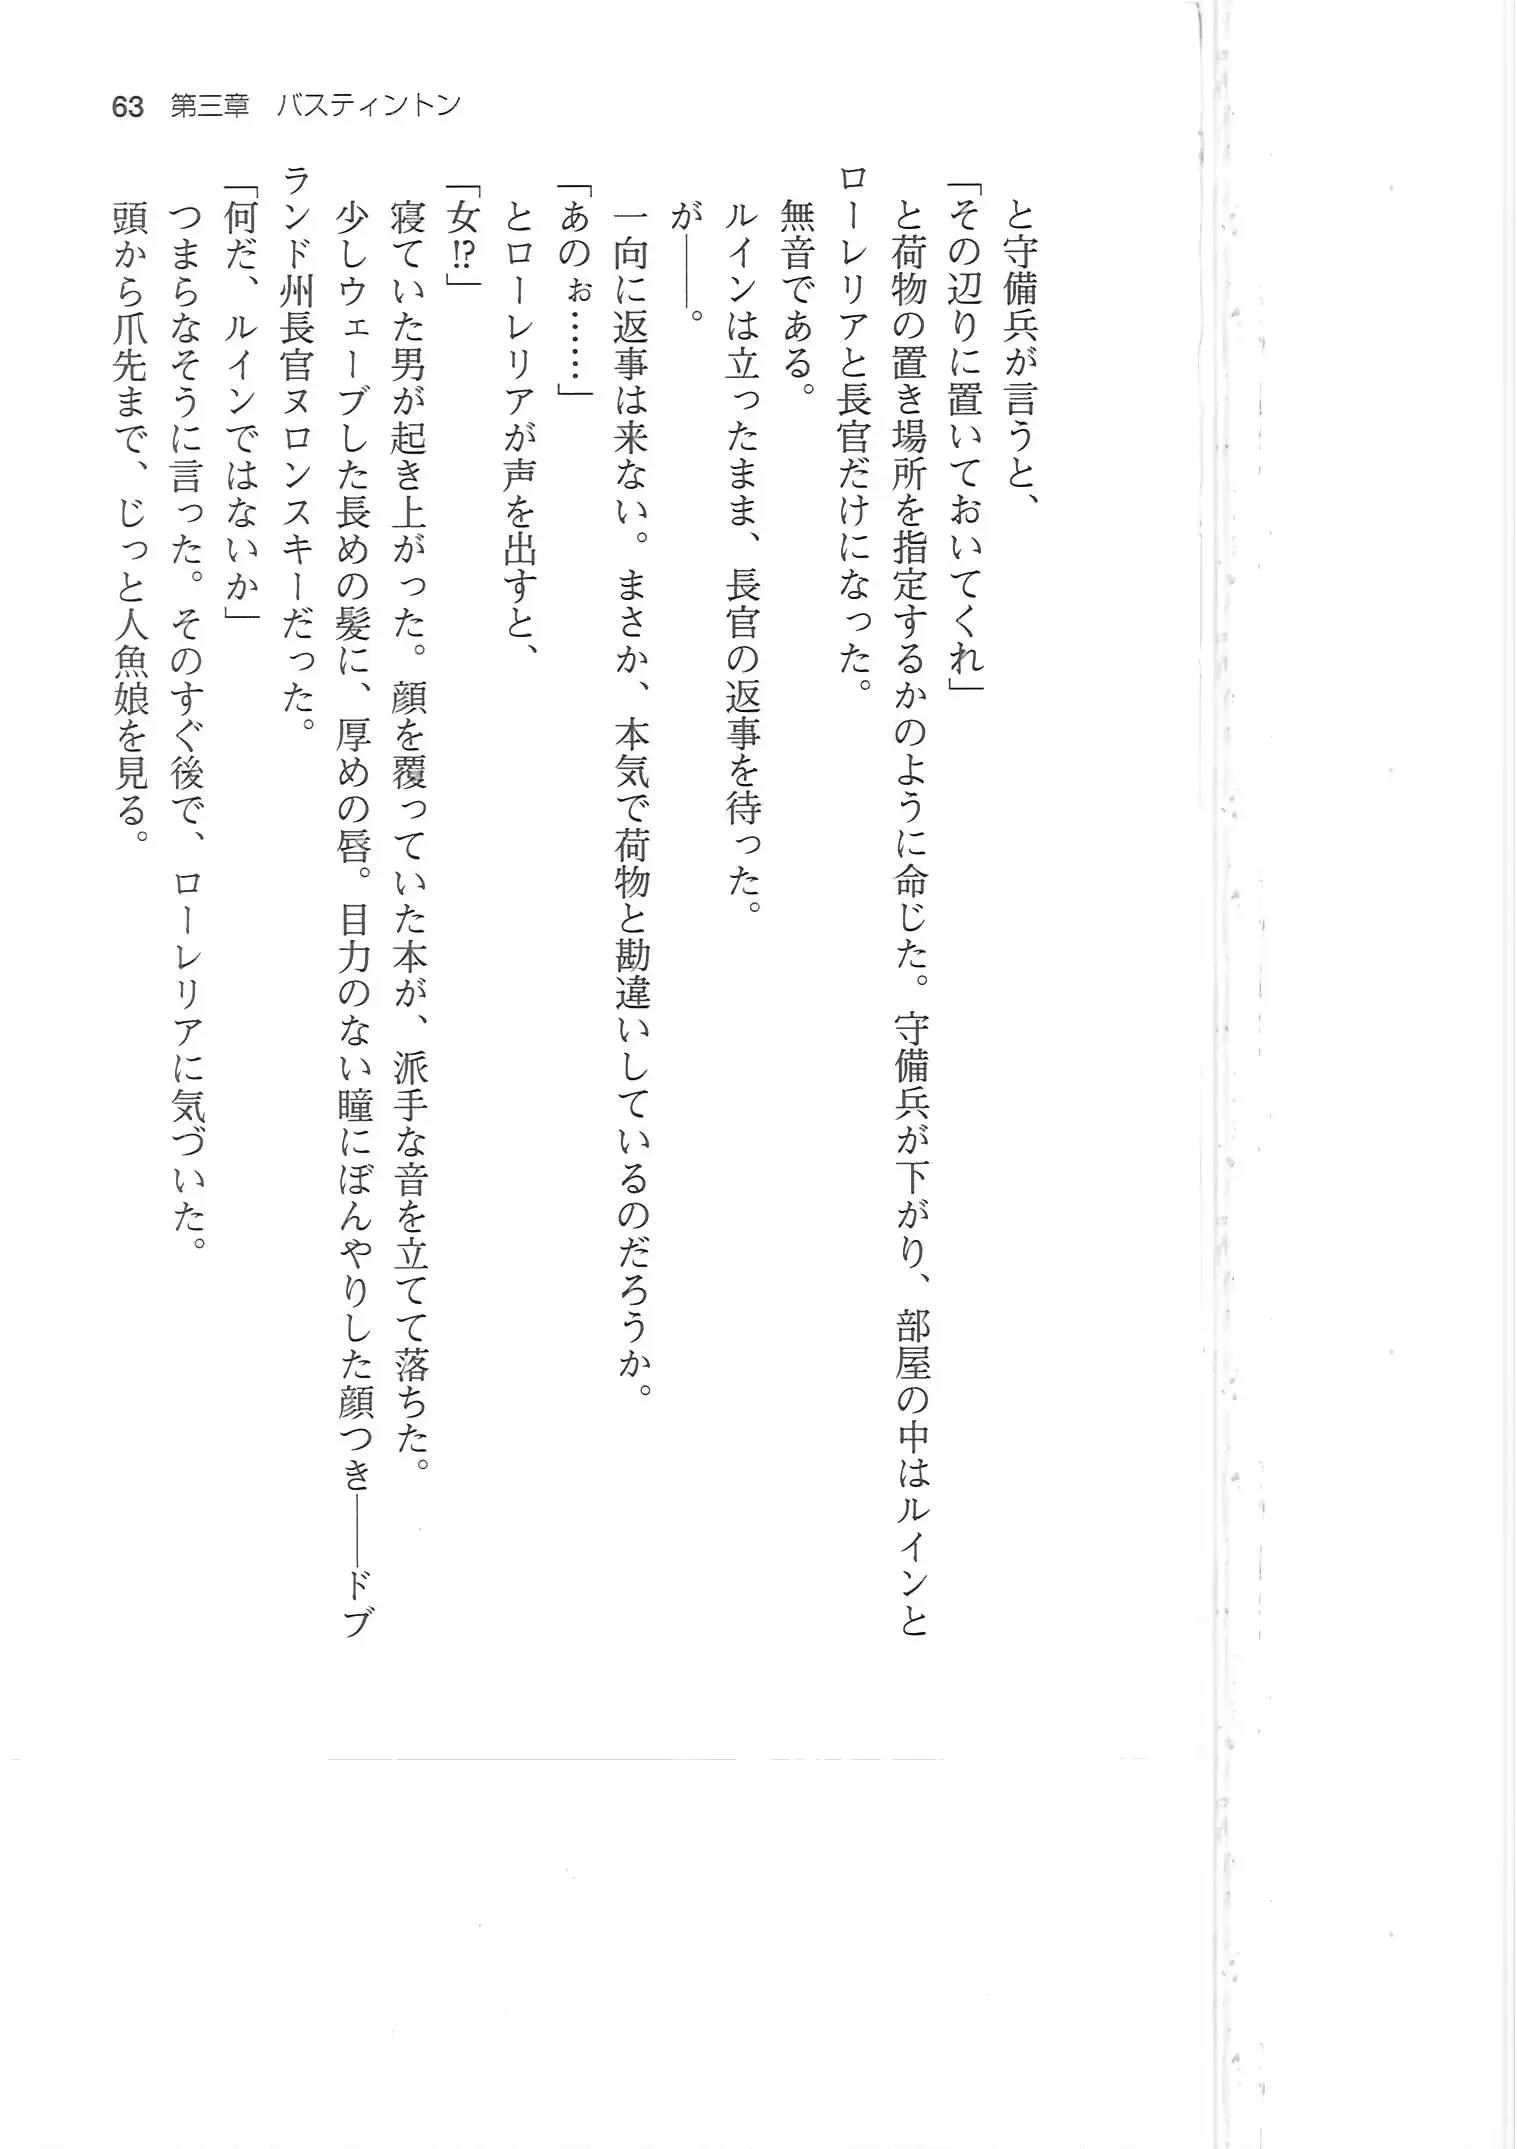 63 第三章 バスティントン
と守備兵が言うと、
「その辺りに置いておいてくれ」
と荷物の置き場所を指定するかのように命じた。守備兵が下がり、部屋の中はルインと
ローレリアと長官だけになった。
無音である。
ルインは立ったまま、長官の返事を待った。
が――。
一向に返事は来ない。まさか、本気で荷物と勘違いしているのだろうか。
「あのぉ……」
とローレリアが声を出すと、
「女!?」
寝ていた男が起き上がった。顔を覆っていた本が、派手な音を立てて落ちた。
少しウェーブした長めの髪に、厚めの唇。目力のない瞳にぼんやりした顔つき――ドブ
ランド州長官ヌロンスキーだった。
「何だ、ルインではないか」
つまらなそうに言った。そのすぐ後で、ローレリアに気づいた。
頭から爪先まで、じっと人魚娘を見る。